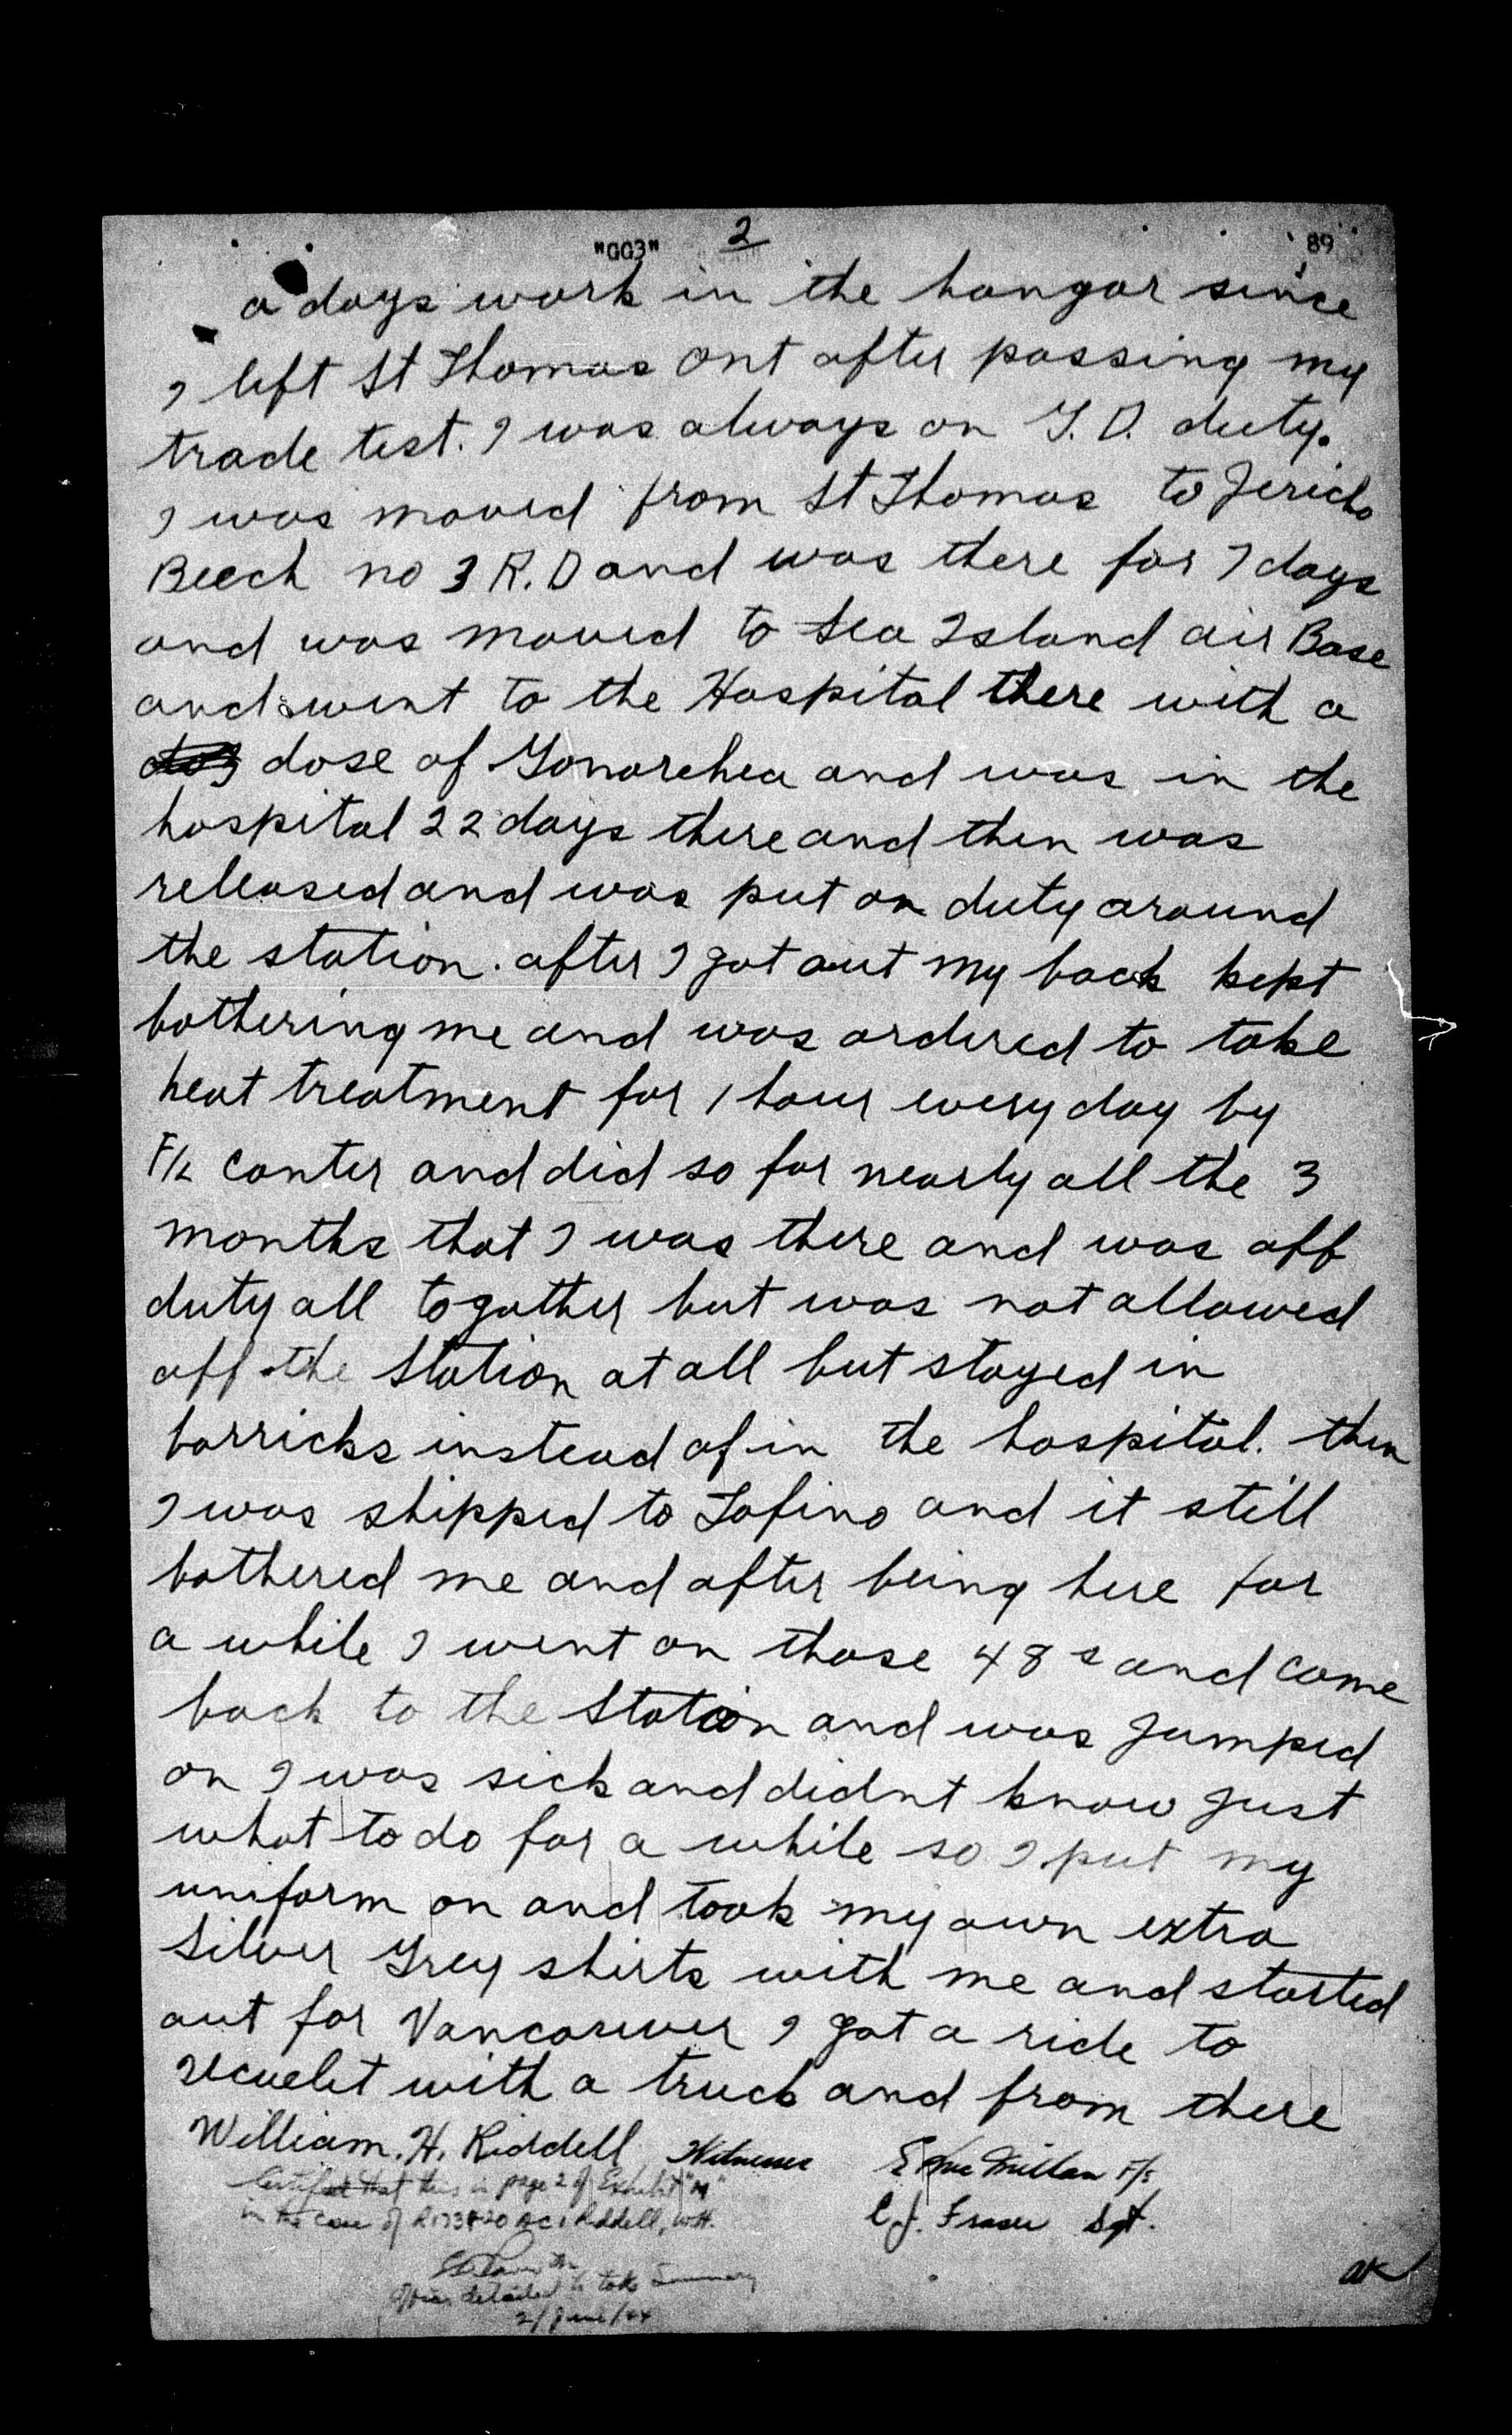 "GG3" 2 89
a days work in the hangar since
I left St Thomas Ont after passing my
trade test. I was always on G.D. duty.
I was moved from St Thomas to Jericho
Beech no 3 R.D and was there for 7 days
and was moved to Sea Island air Base
and went to the Hospital there with a
dose of Gonorehea and was in the
hospital 22 days there and then was
released and was put on duty around
the station. after I got out my back kept
bothering me and was ordered to take
heat treatment for 1 hour every day by
F/L Conter and did so for nearly all the 3
months that I was there and was off
duty all togather but was not allowed
off the Station at all but stayed in
barricks instead of in the hospital. then
I was shipped to Tofino and it still
bothered me and after being here for
a while I went on those 48s and came
back to the Station and was Jumped
on I was sick and didnt know Just
what to do for a while so I put my
uniform on and took my own extra
Silver Grey shirts with me and started
out for Vancouver I got a ride to
Ucuelet with a truck and from there
William. H. Riddell Witnesses E MacMillan F/S
Certified that this is page 2 of Exhibit "M"
in the case of AC1 Riddell, W.H. C.J. Fraser Sgt.
Officer detailed to take Summary
2/June/44